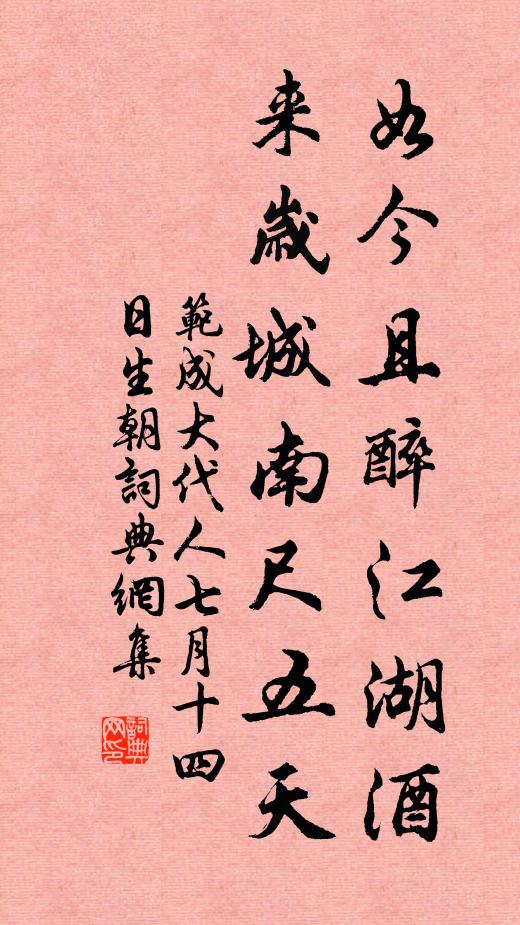 如今且醉江湖酒
来歲城南尺五天
範成大代人七月十四
日生朝詞典網集
詞典
网印